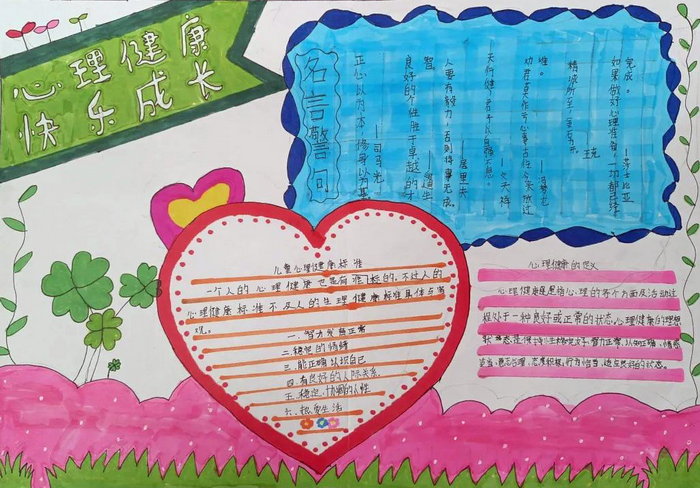 心理健康
快乐成长
名言警句
正心以为本,修身以为基
——司马光
良好的个性胜于卓越的才
智
——爱迪生
人要有毅力,否则将事无成。
——居里夫
天行健,君子以自强不息。
——文天祥
难。
——冯梦龙
精诚所至,金石为开。
——王充
如果做好心理准备,一切都准备
完成。
——莎士比亚
儿童心理健康标准
一个人的心理健康也是有准标的,不过人的
心理健康标准不及人的生理健康标准具体与客
观。
一.智力发育正常
二.稳定的情绪
三.能正确认识自己
四.有良好的人际关系
五.稳定、协调的个性
六.热爱生活
心理健康的定义
心理健康是指心理的各个方面及活动过
程处于一种良好或正常的状态。心理健康的理想
状态是保持性格完好、智力正常、认知正确、情感
适当、意志合理、态度积极、行为恰当、适应良好的状态。